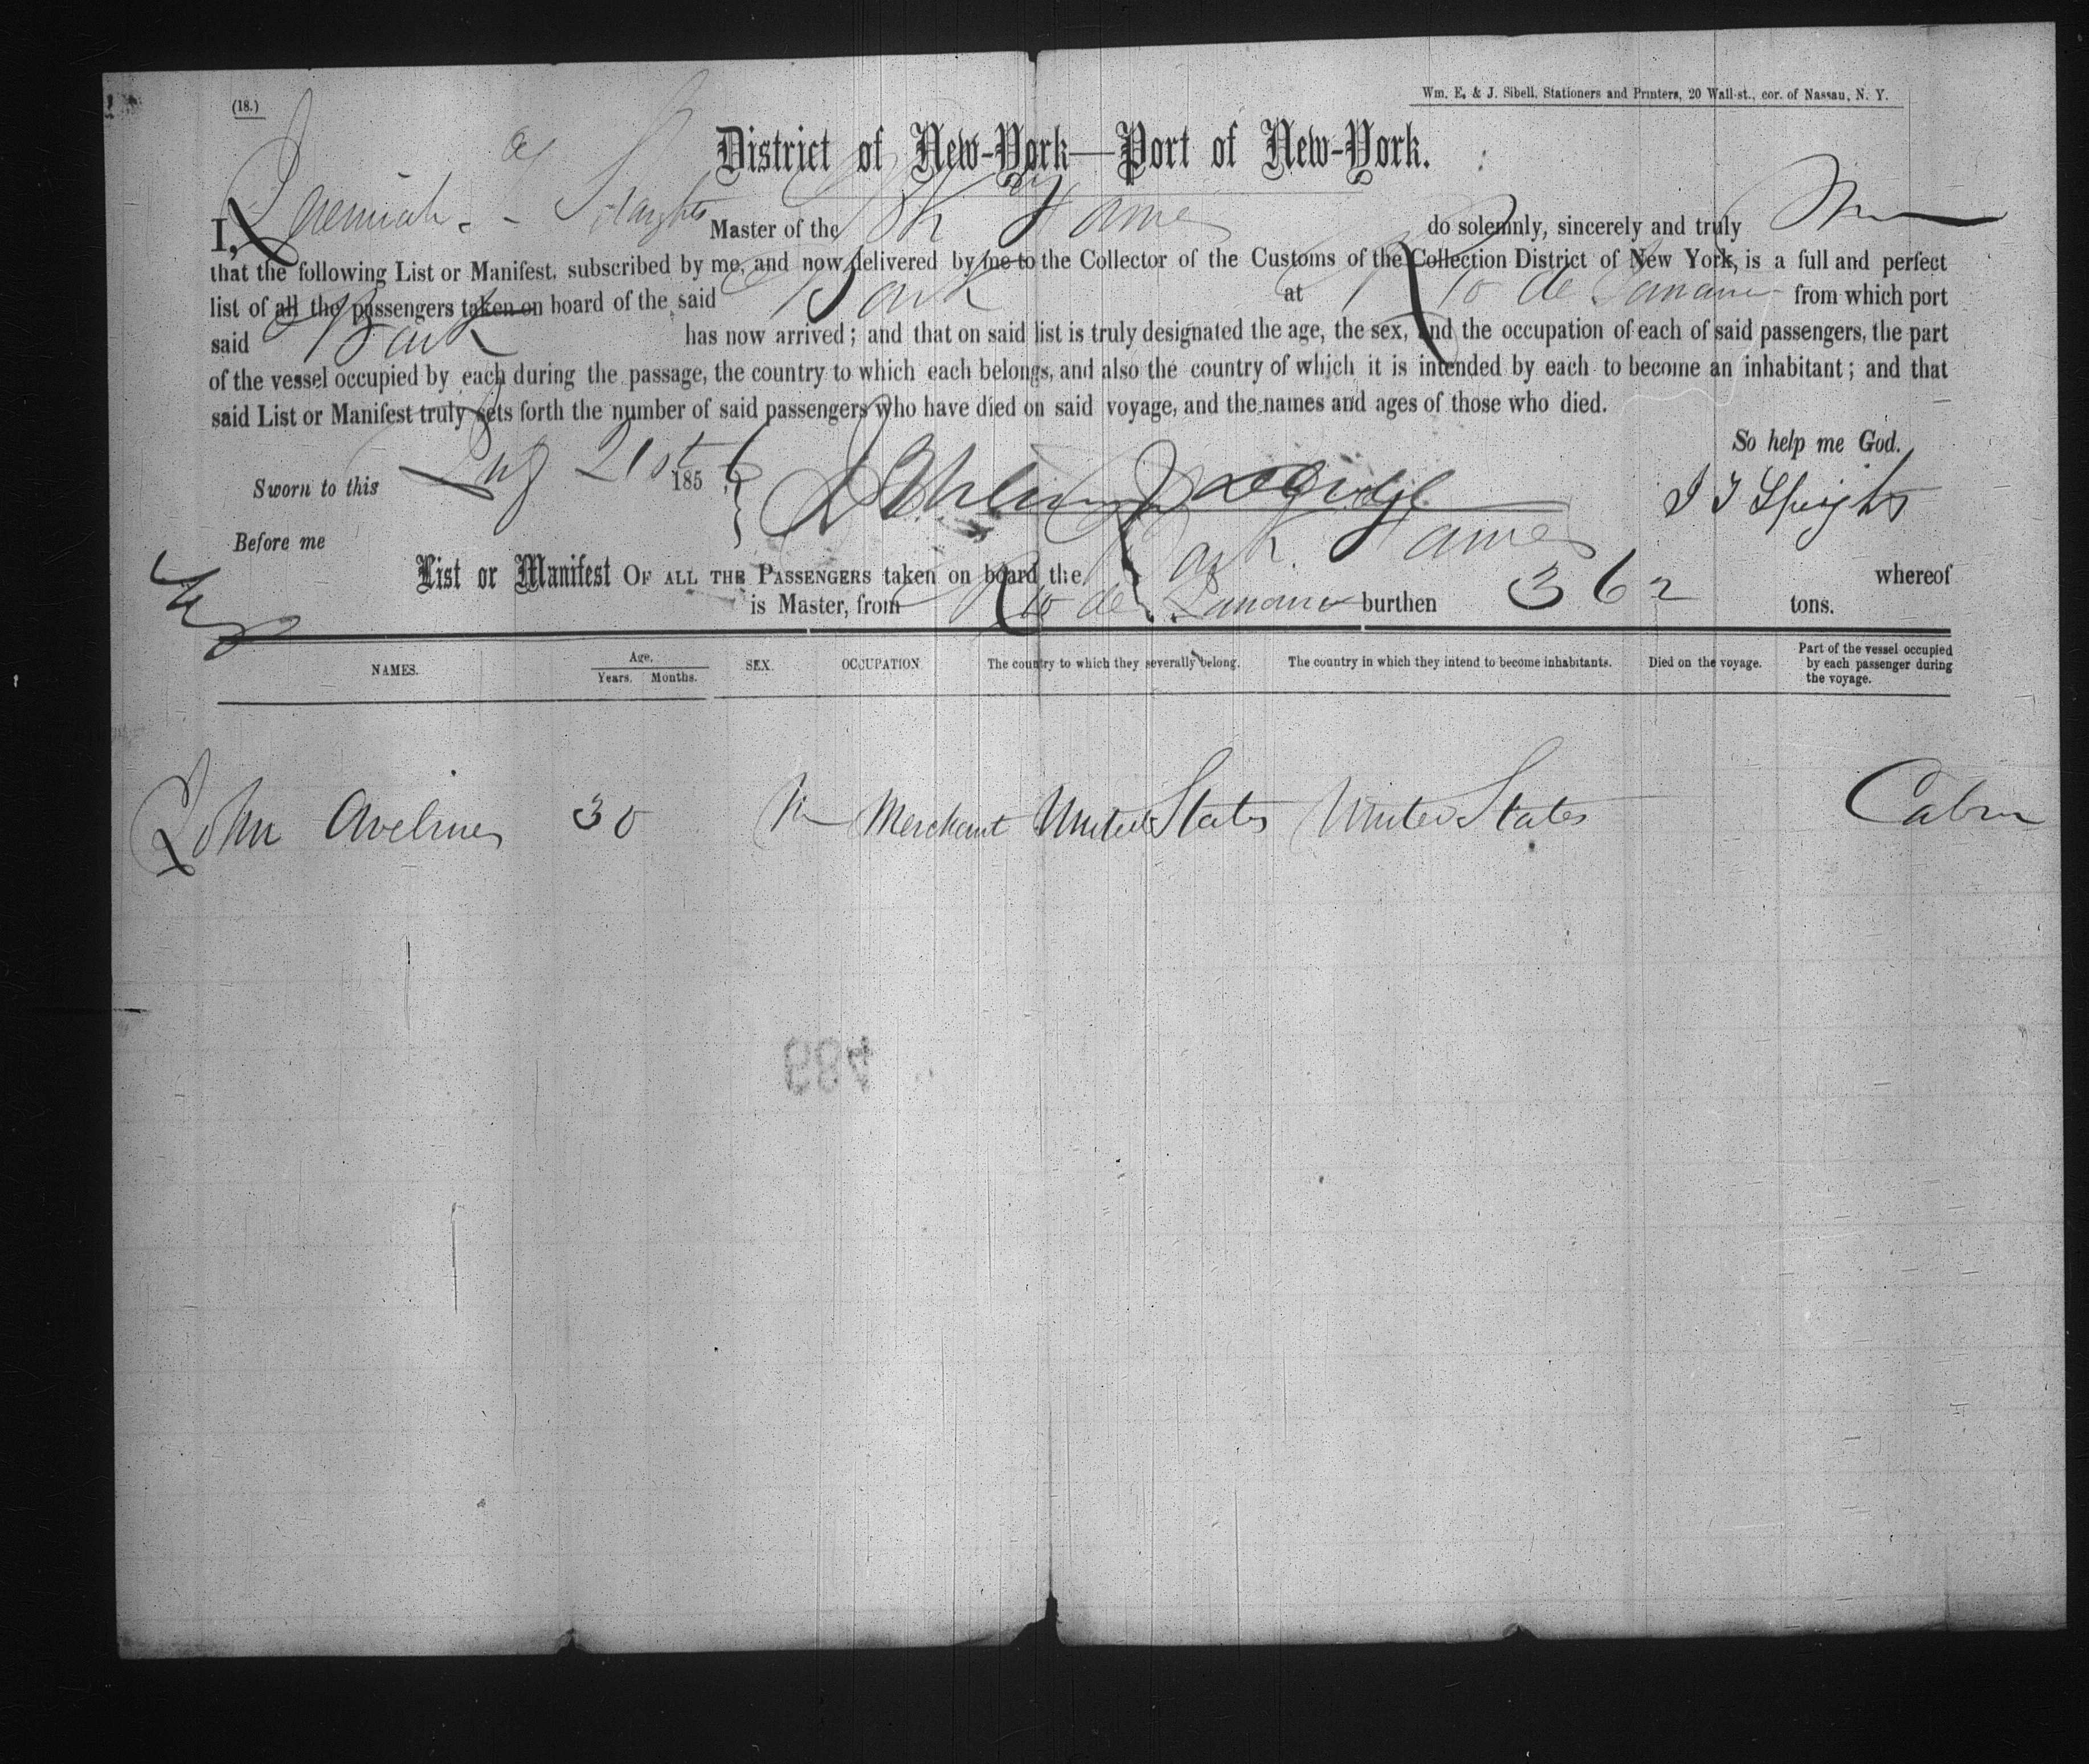 (18.)
Wm. E. & J. Sibell, Stationers and Printers, 20 Wall-st., cor. of Nassau, N. Y.
District of New-York—Port of New-York.
I, Jeremiah Master of the do solemnly, sincerely and truly
that the following List or Manifest, subscribed by me, and now delivered by me to the Collector of the Customs of the Collection District of New York, is a full and perfect
list of all the passengers taken on board of the said Bark at Rio de from which port
said Bark has now arrived; and that on said list is truly designated the age, the sex, and the occupation of each of said passengers, the part
of the vessel occupied by each during the passage, the country to which each belongs, and also the country of which it is intended by each to become an inhabitant; and that
said List or Manifest truly sets forth the number of said passengers who have died on said voyage, and the names and ages of those who died.
So help me God.
Sworn to this Aug 21st 1856
Before me
List or Manifest OF ALL THE PASSENGERS taken on board the Bark whereof
is Master, from Rio de burthen 362 tons.
NAMES. Age. Years. Months. SEX. OCCUPATION The country to which they severally belong. The country in which they intend to become inhabitants. Died on the voyage. Part of the vessel occupied by each passenger during the voyage.
John M Merchant United States United States Cabin
30
684